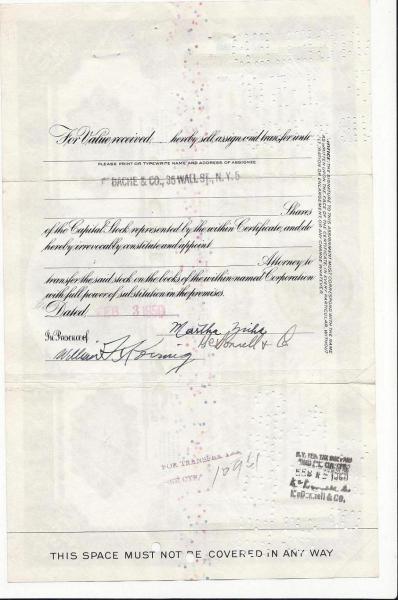 For Value received, hereby sell, assign and transfer unto
PLEASE PRINT OR TYPEWRITE NAME AND ADDRESS OF ASSIGNEE
BACHE & CO., 36 WALL ST., N.Y. 5
Shares
of the Capital Stock represented by the within Certificate, and do
hereby irrevocably constitute and appoint
Attorney to
transfer the said stock on the books of the within named Corporation
with full power of substitution in the premises.
Dated FEB 3 1950
In Presence of
Martha
McDonnell & Co
William
NOTICE: THE SIGNATURE TO THIS ASSIGNMENT MUST CORRESPOND WITH THE NAME
AS WRITTEN UPON THE FACE OF THE CERTIFICATE, IN EVERY PARTICULAR, WITHOUT
ALTERATION OR ENLARGEMENT, OR ANY CHANGE WHATEVER.
FOR TRANSFER TAX
10951
McDonnell & Co.
THIS SPACE MUST NOT BE COVERED IN ANY WAY